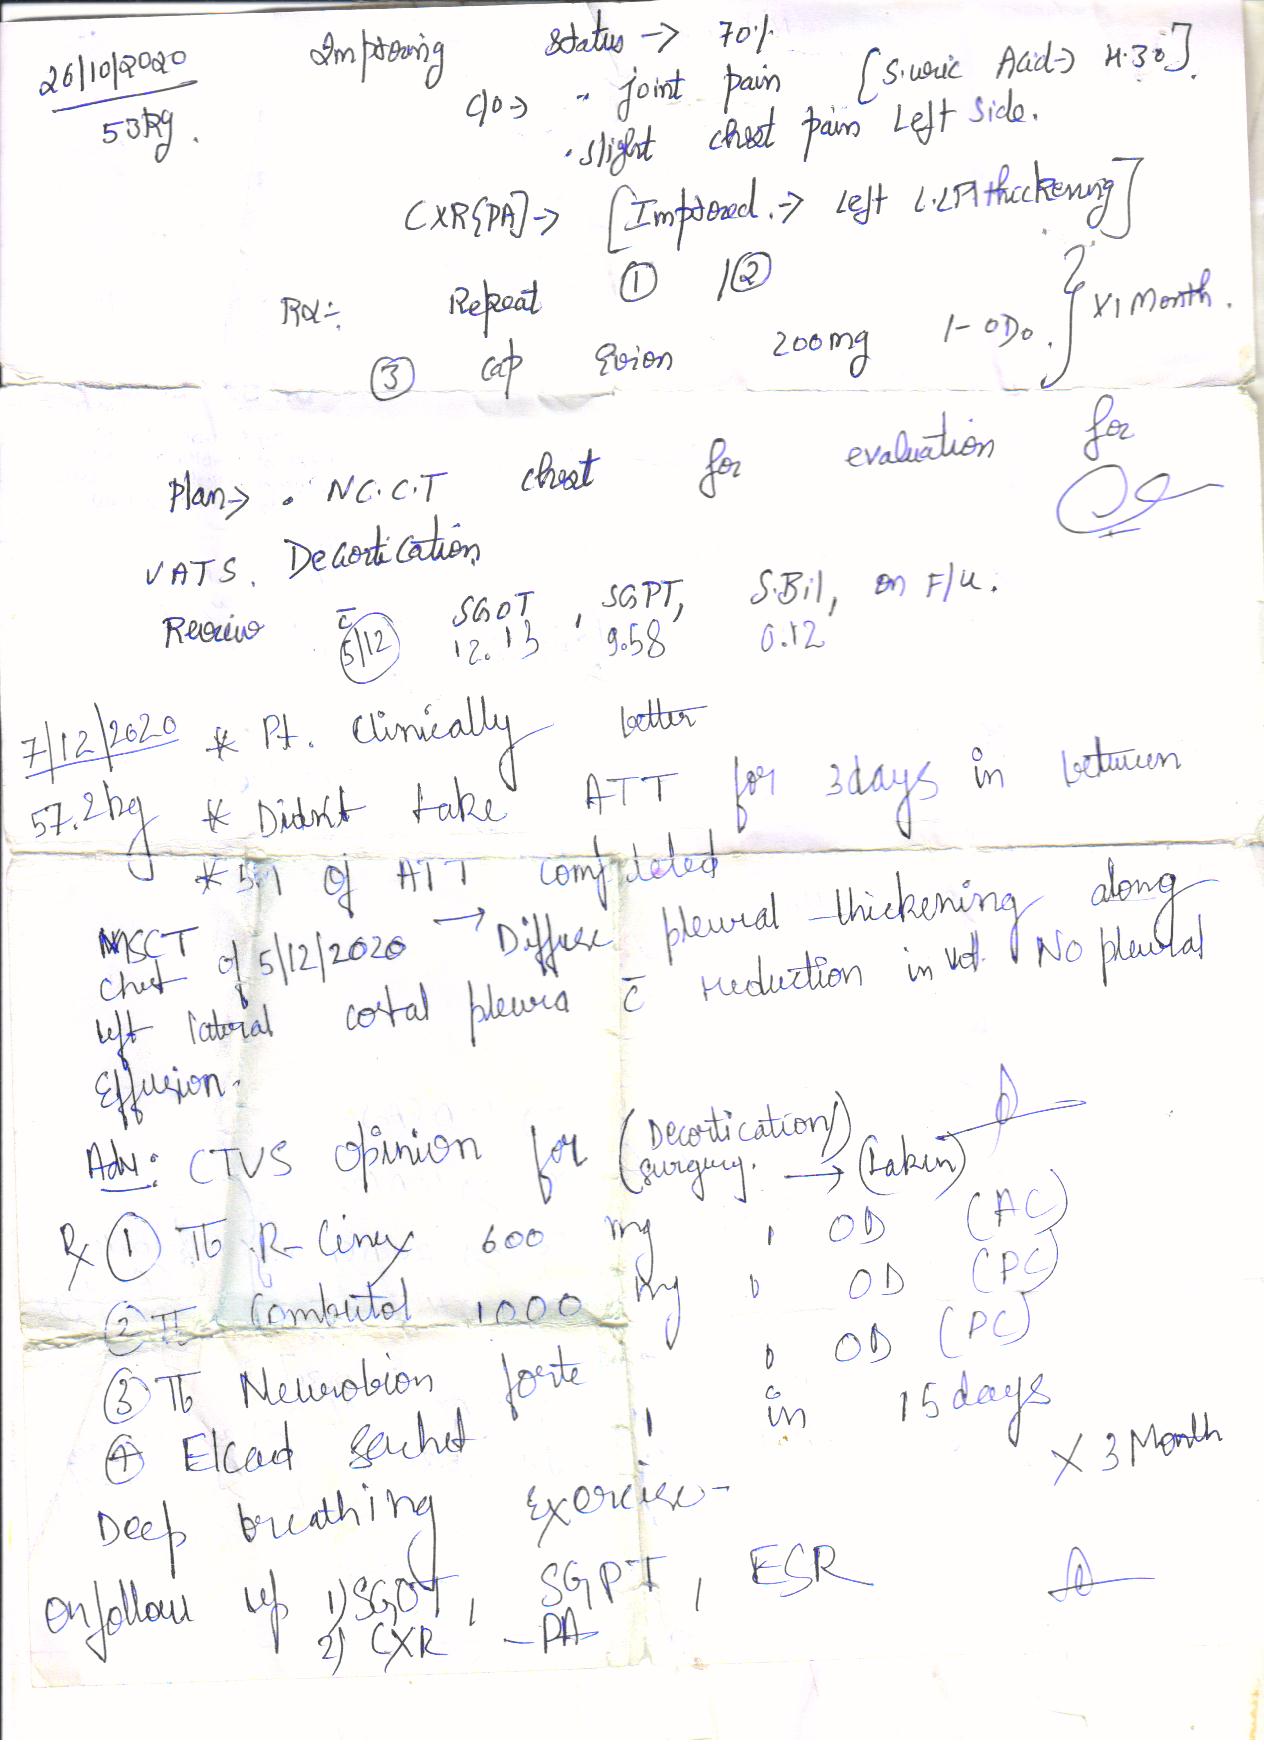 26/10/2020 Improving Status → 70%
53kg. c/o → • joint pain [S. uric Acid → 4.30].
• slight chest pain Left Side.
CXR[PA] → [Improved. → Left L.L Pl thickening]
Rx:- Repeat ① /②
③ cap Evion 200mg 1-OD. } x 1 Month.
Plan → • N.C.C.T chest for evaluation for
VATS. Decortication
Review c̄ SGOT, SGPT, S.Bil, on F/u.
5/12 12.13 9.58 0.12
7/12/2020 * Pt. Clinically better
57.2kg * Didn't take ATT for 3days in between
* 5.1 of ATT completed
MSCT Chest of 5/12/2020 → Diffuse pleural thickening along
left lateral costal pleura c̄ reduction in vol. No pleural
Effusion.
Adv: CTVS opinion for (Decortication surgery. → (taken)
Rx ① Tb R-Cinex 600 mg, OD (AC)
② Tb Combutol 1000 mg, OD (PC)
③ Tb Neurobion forte, OD (PC)
④ Elcad Sachet, in 15 days
x 3 Month
Deep breathing Exercise-
On follow up 1) SGOT, SGPT, ESR
2) CXR -PA